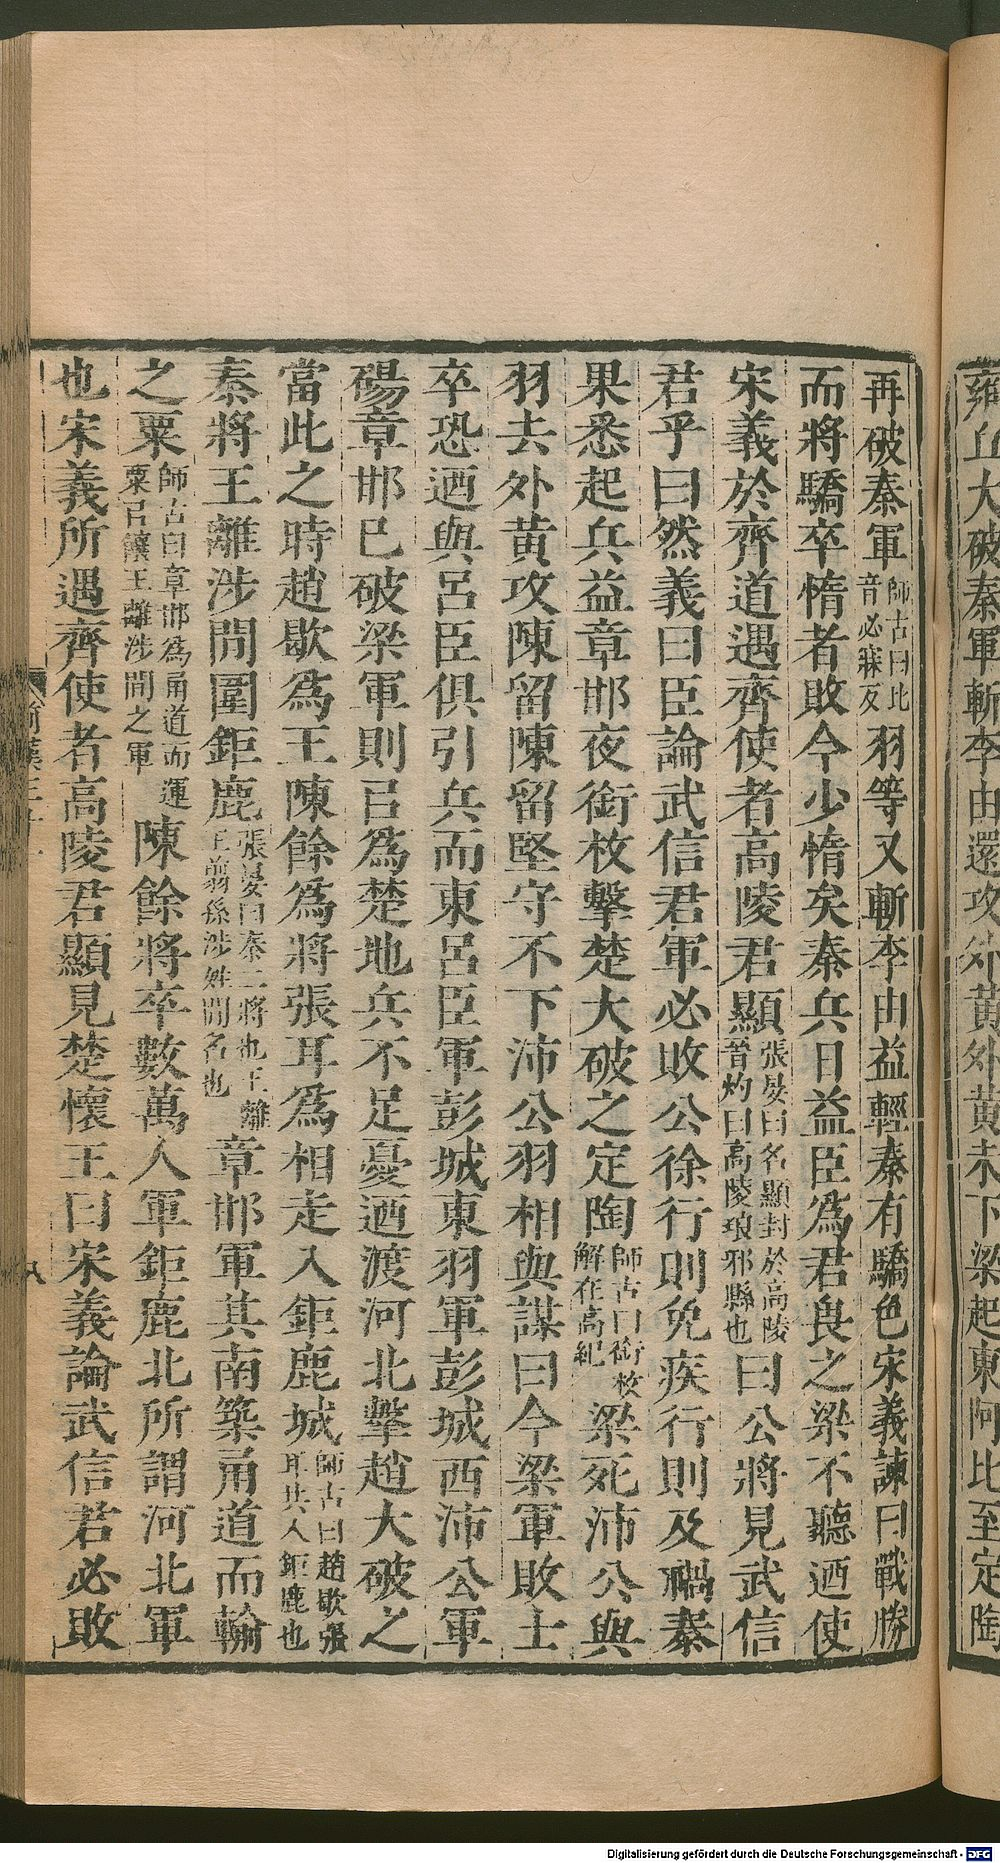 雍丘大破秦軍斬李由還攻外黃外黃未下梁起東阿比至定陶
再破秦軍師古曰比音必寐反羽等又斬李由益輕秦有驕色宋義諫曰戰勝
而將驕卒惰者敗今少惰矣秦兵日益臣爲君畏之梁不聽迺使
宋義於齊道遇齊使者高陵君顯張晏曰名顯封於高陵晉灼曰高陵琅邪縣也曰公將見武信
君乎曰然義曰臣論武信君軍必敗公徐行則免疾行則及禍秦
果悉起兵益章邯夜銜枚擊楚大破之定陶師古曰銜枚解在高紀梁死沛公與
羽去外黃攻陳留陳留堅守不下沛公羽相與謀曰今梁軍敗士
卒恐迺與呂臣俱引兵而東呂臣軍彭城東羽軍彭城西沛公軍
碭章邯已破梁軍則㠯爲楚地兵不足憂迺渡河北擊趙大破之
當此之時趙歇爲王陳餘爲將張耳爲相走入鉅鹿城師古曰趙歇張耳共入鉅鹿也
秦將王離涉閒圍鉅鹿張晏曰秦二將也王離王翦孫涉姓閒名也章邯軍其南築甬道而輸
之粟師古曰章邯爲甬道而運粟㠯饟王離涉閒之軍陳餘將卒數萬人軍鉅鹿北所謂河北軍
也宋義所遇齊使者高陵君顯見楚懷王曰宋義論武信君必敗
八
Digitalisierung gefördert durch die Deutsche Forschungsgemeinschaft - DFG